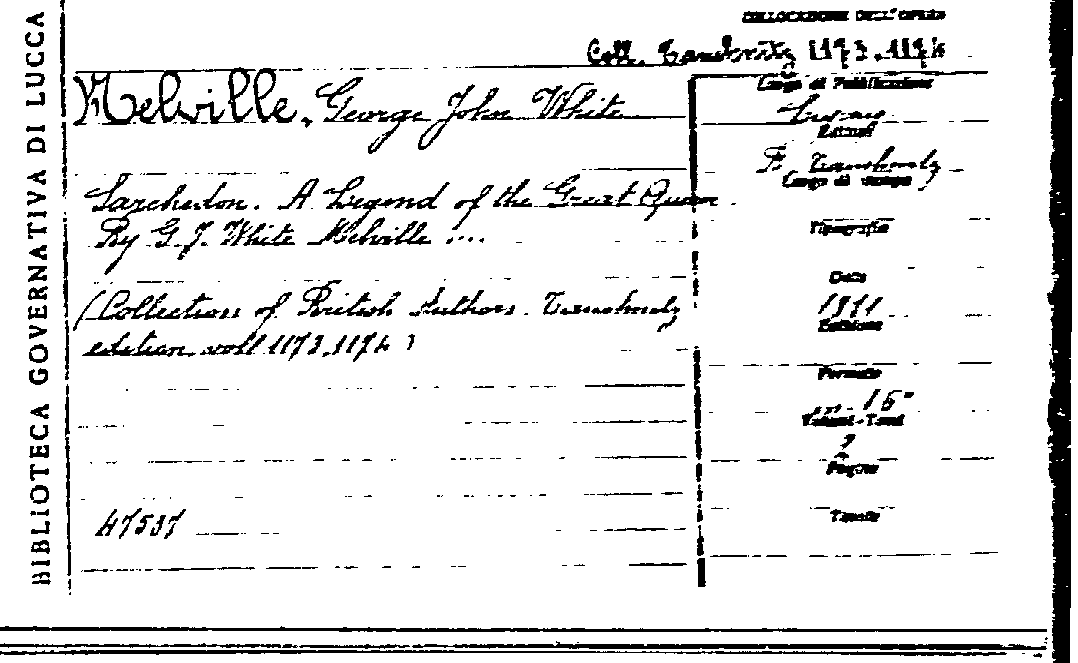 BIBLIOTECA GOVERNATIVA DI LUCCA
COLLOCAZIONE DELL'OPERA
Coll. Tauchnitz 1173.1174
Melville, George John White
Luogo di Pubblicazione
Editori
B. Tauchnitz
Luogo di stampa
Sarchedon. A Legend of the Great Queen.
By G. J. White Melville ....
Tipografia
Data
1871
Edizione
(Collection of British Authors. Tauchnitz
edition voll 1173.1174)
Formato
in-16°
Volumi-Tomi
2
Pagine
Tavole
47537